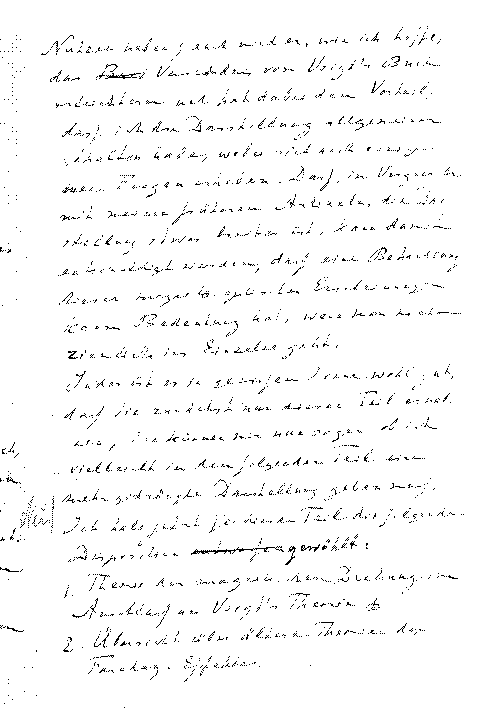 Nutzen haben; auch wird er, wie ich hoffe,
das Verständnis von Voigt's Buch
erleichtern und hat dabei den Vorteil,
dass ich die Darstellung allgemeiner
gehalten habe, wobei sich auch einige
neue Fragen erheben. Dass, im Vergleich
mit meinen früheren Artikeln, die Dar-
stellung etwas breiter ist, kann damit
entschuldigt werden, dass eine Behandlung
dieser magneto-optischen Erscheinungen
kaum Bedeutung hat, wenn man nicht
ziemlich ins Einzelne geht.
Indes ist es in gewissem Sinne wohl gut,
dass Sie zunächst nur diesen Teil erhal-
ten, Sie können mir nun sagen ob ich
vielleicht in dem folgenden Teil eine
mehr gedrängte Darstellung geben muss.
Ich habe jetzt für diesen Teil die folgende
Disposition gewählt:
1. Theorie der magnetischen Drehung im
Anschluss an Voigt's Theorie
2. Übersicht über ältere Theorien des
Faraday-Effektes